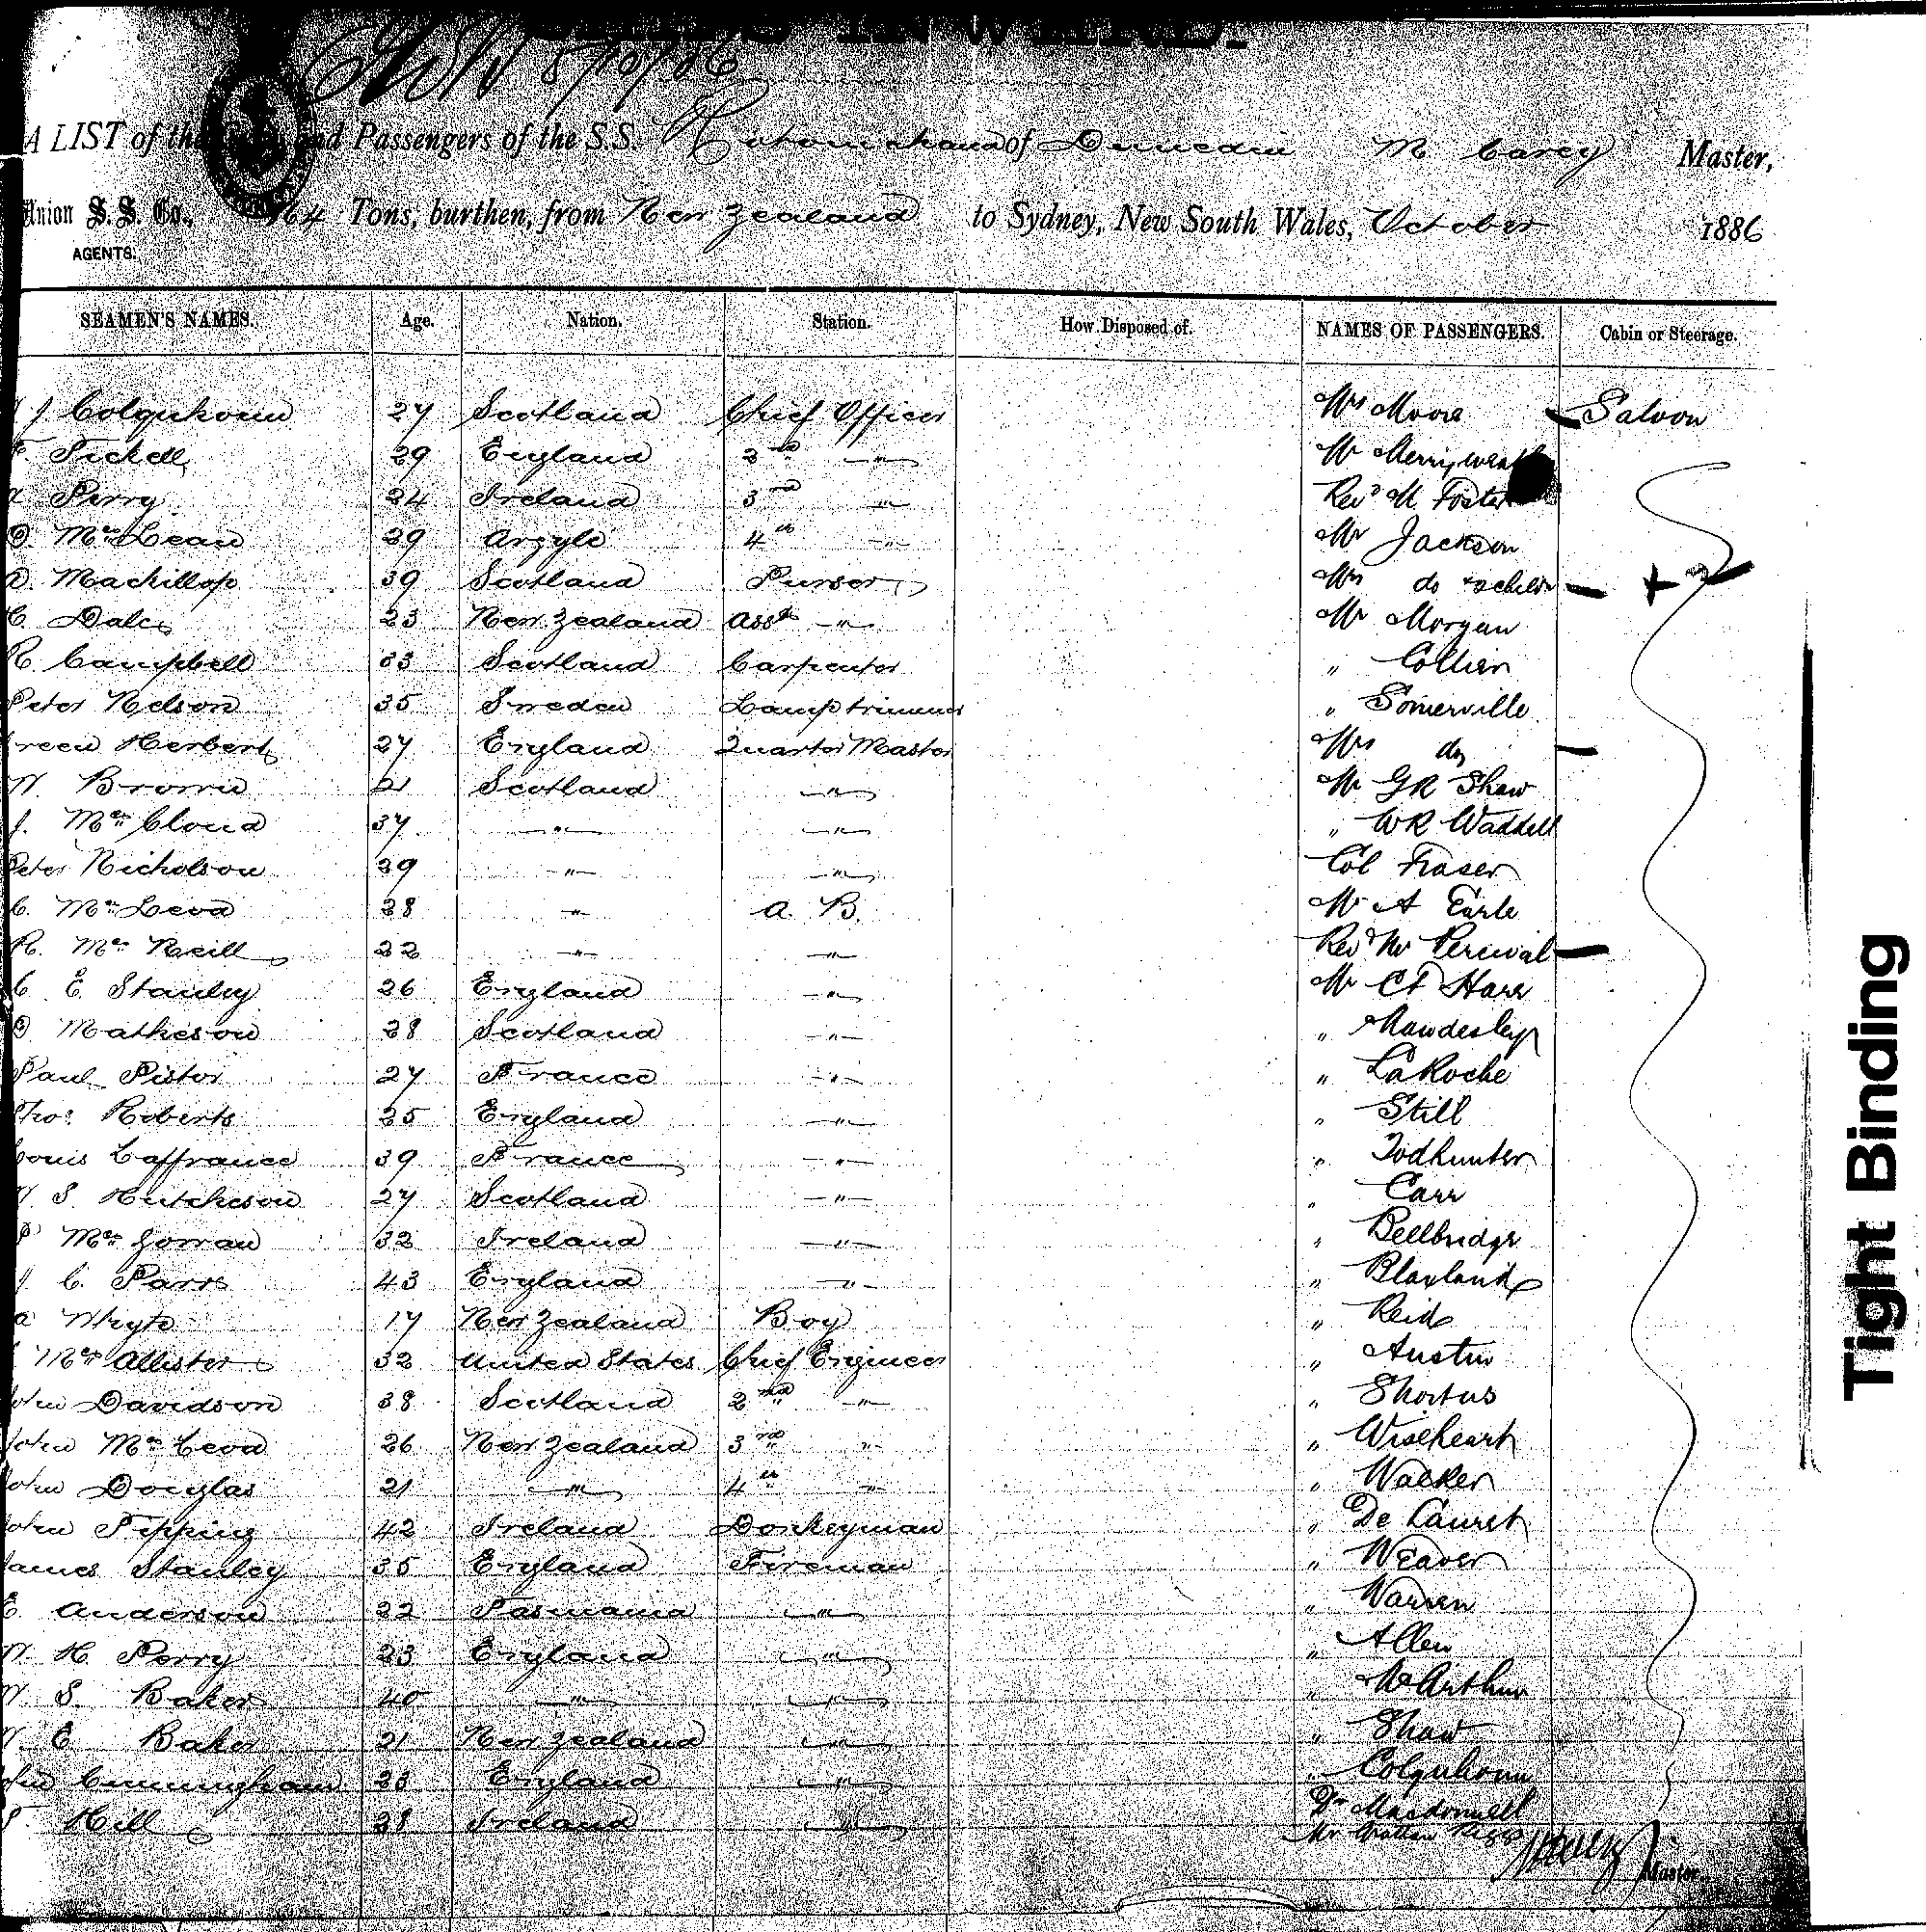 SHIPS INWARD.
8/10/86
A LIST of the Crew and Passengers of the S.S. Rotomahana of Dunedin M Carey Master,
Union S.S. Co., 64 Tons, burthen, from New Zealand to Sydney, New South Wales, October 1886
AGENTS.
SEAMEN'S NAMES. Age. Nation. Station. How Disposed of. NAMES OF PASSENGERS. Cabin or Steerage.
J Colquhoun 27 Scotland Chief Officer Mrs Moore Saloon
F. Tickell 29 England 2nd " Mr Merryweath
Perry 24 Ireland 3rd " Revd M. Foster
D. McLean 29 Argyle 4th " Mr Jackson
A. Mackillop 39 Scotland Purser Mrs do + 2 childn
C. Dale 23 New Zealand Asst " Mr Morgan
R. Campbell 33 Scotland Carpenter " Collier
Peter Nelson 35 Sweden Lamptrimmer " Somerville
reen Herbert 27 England Quarter Master Mrs do
W. Brown 21 Scotland " Mr GR Shaw
J. McCloud 37 " " " WR Waddell
Peter Nicholson 29 " " Col Fraser
C. McLeod 28 " A. B. Mr A Earle
R. McNeill 22 " " Revd Mr Percival
C. E. Stanley 26 England " Mr CF Harr
D Matheson 28 Scotland " " Mawdesley
Paul Pistor 27 France " " LaRoche
Thos Roberts 25 England " " Still
Louis Laffrance 39 France " " Todhunter
S. Hutcheson 27 Scotland " " Carr
P McGorran 32 Ireland " " Bellbridge
J. C. Parrs 43 England " " Blaxland
A Whyte 17 New Zealand Boy " Reid
McAllister 32 United States Chief Engineer " Austin
John Davidson 38 Scotland 2nd " " Shortus
John McLeod 26 New Zealand 3rd " " Wiseheart
John Douglas 21 " 4th " " Walker
John Tipping 42 Ireland Donkeyman " De Lauret
James Stanley 35 England Fireman " Weaver
E Anderson 22 Tasmania " " Warren
W. H. Perry 23 England " " Allen
W S. Baker 40 " " " McArthur
W. E Baker 21 New Zealand " " Shaw
John Cunningham 23 England " " Colquhoun
Hill 28 Ireland " Dr Macdonnell
Mr Grattan Riggs
M Carey
Master.
Tight Binding